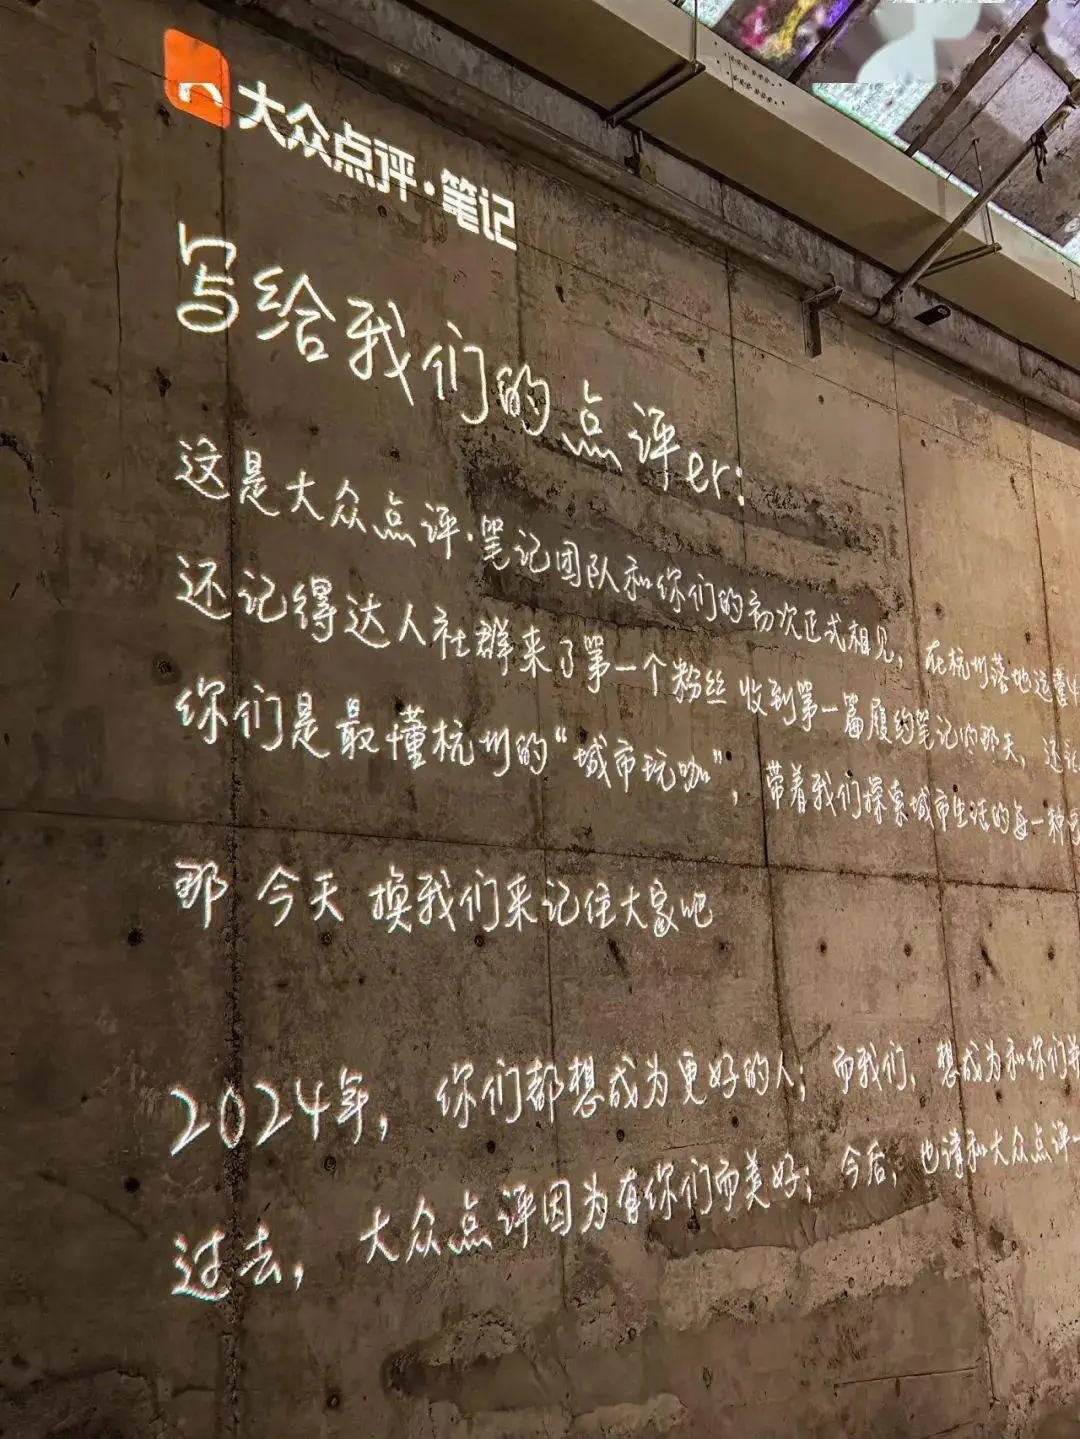 大众点评·笔记
写给我们的点评er:
这是大众点评·笔记团队和你们的初次正式相见，在杭州落地运营
还记得达人社群来了第一个粉丝 收到第一篇履约笔记的那天，还记
你们是最懂杭州的“城市玩咖”，带着我们探索城市生活的每一种
那 今天 换我们来记住大家吧
2024年，你们都想成为更好的人；而我们，想成为和你们并
过去，大众点评因为有你们而美好；今后，也请和大众点评一